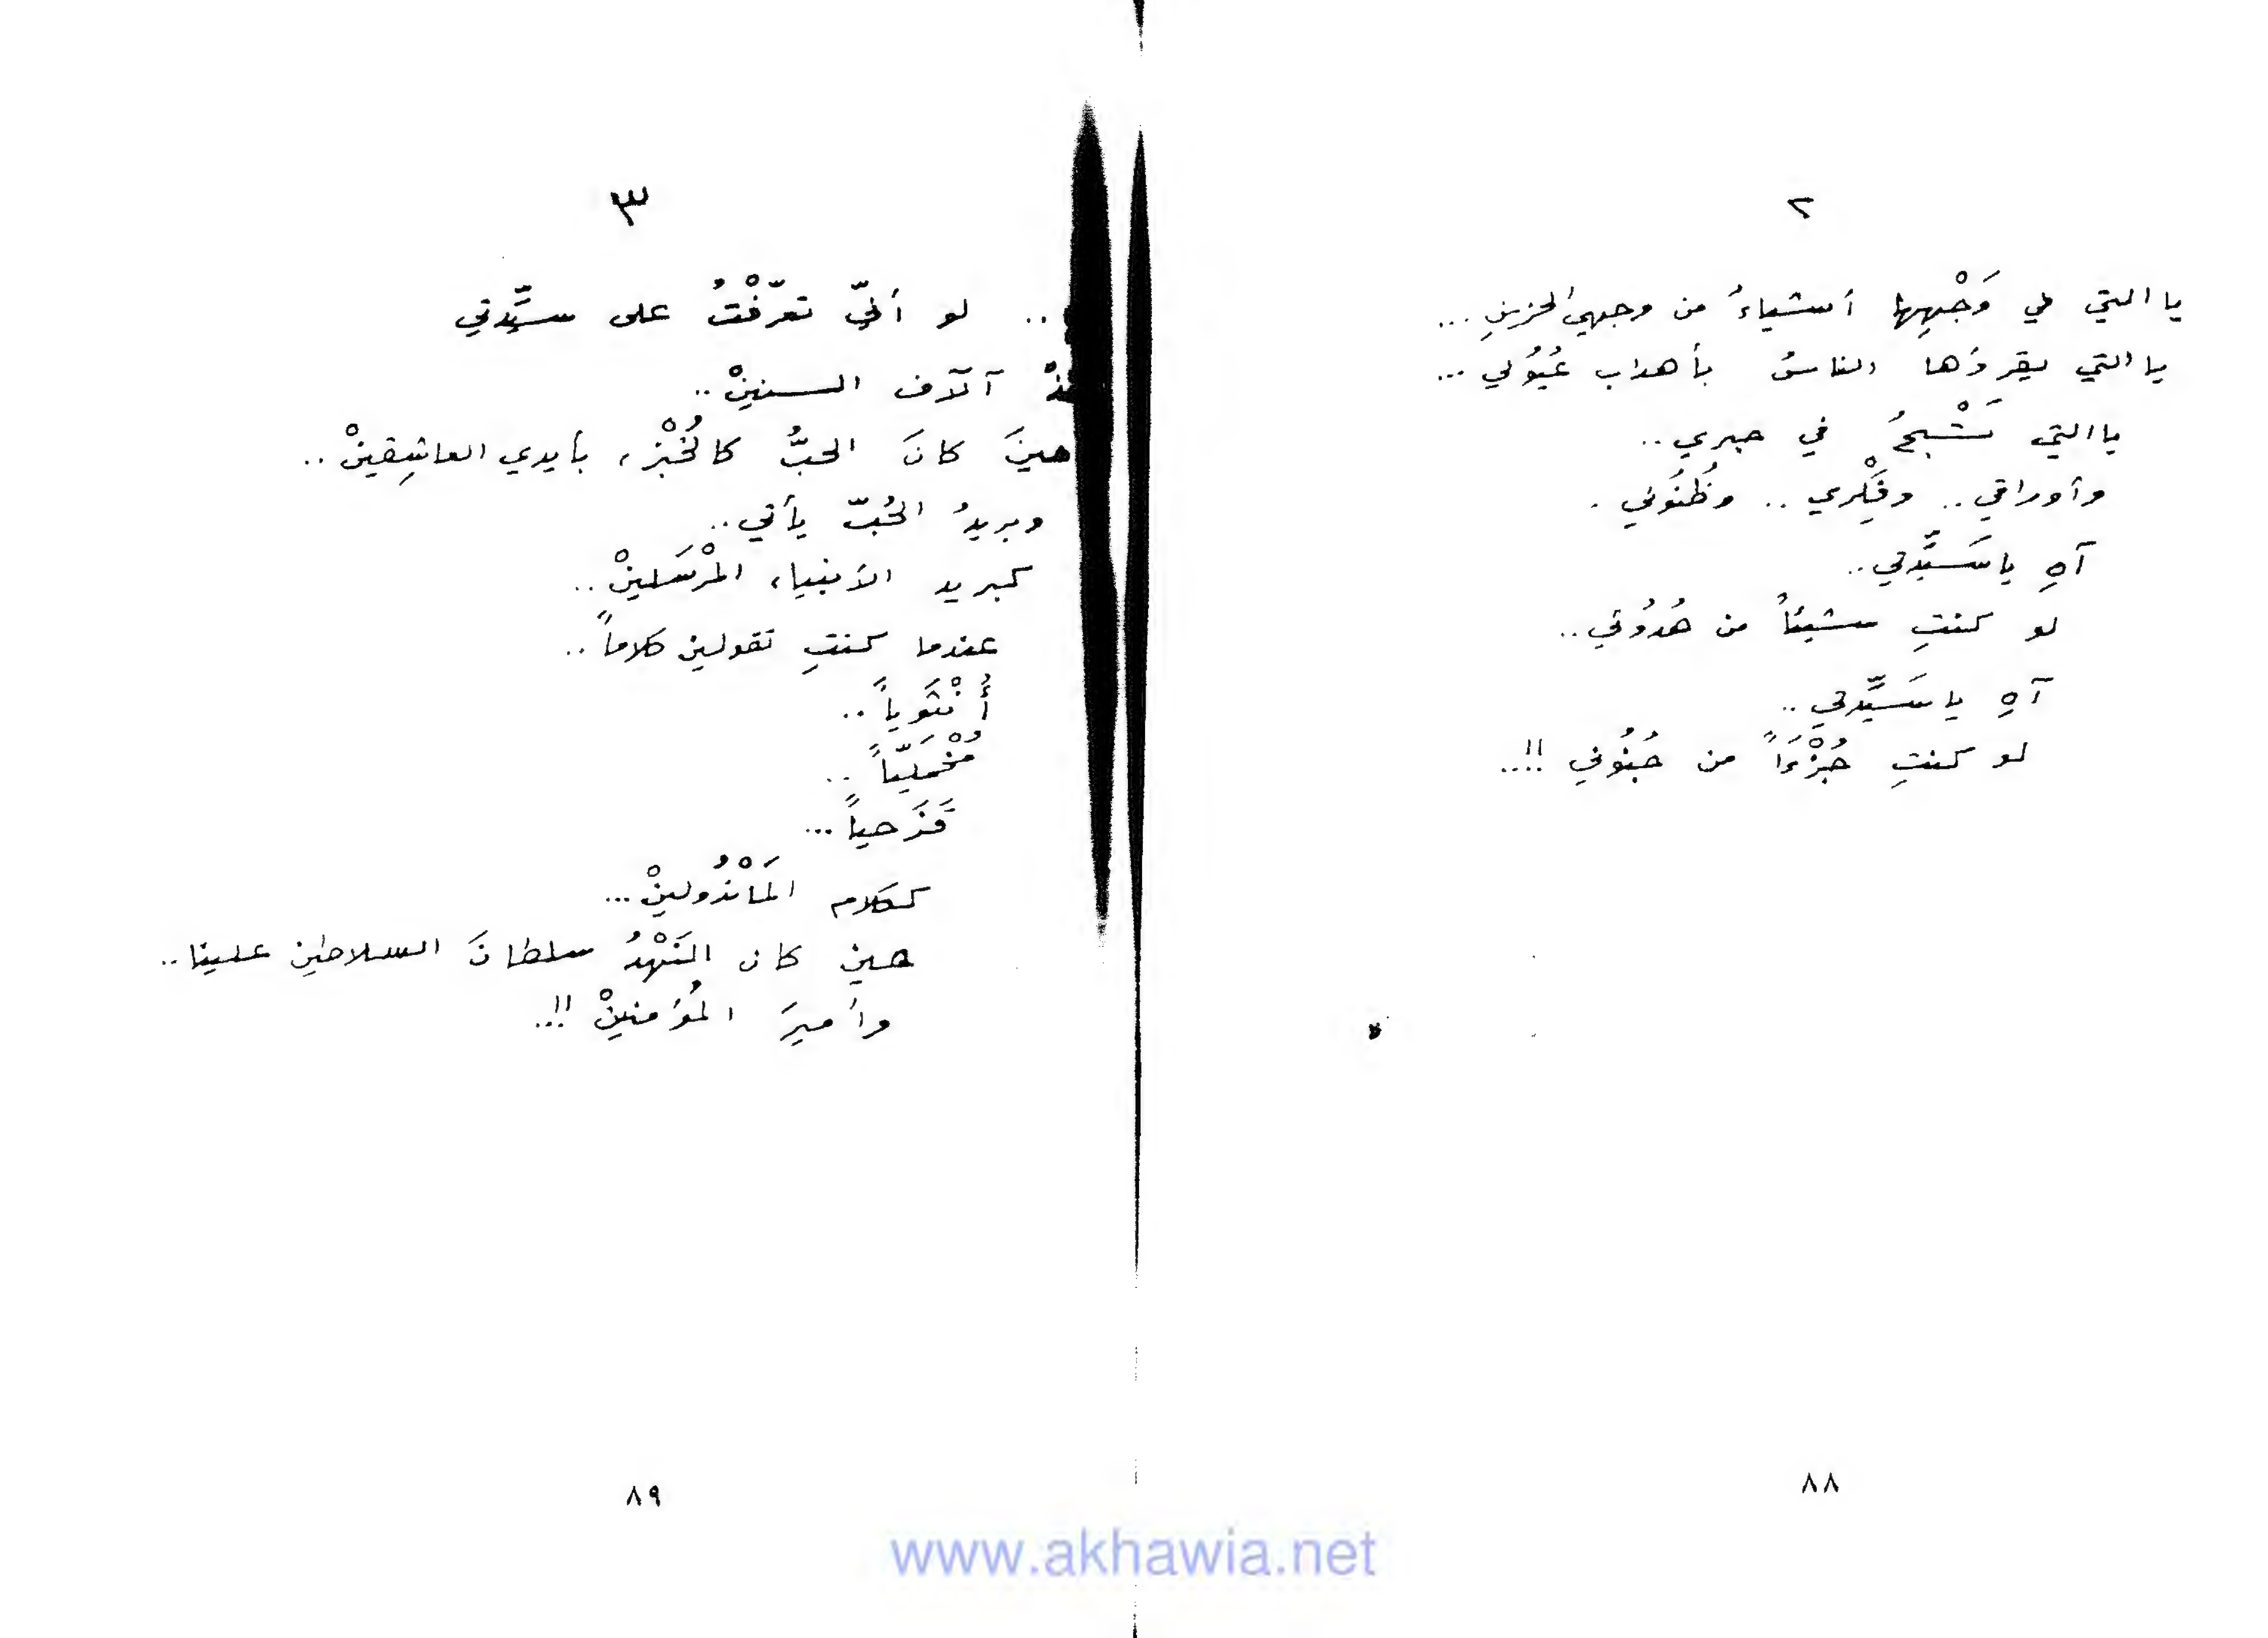 ٢
يا التي في وَجْهِها أشياءُ من وجهي الحزينِ...
يا التي يقرؤها الناسُ بأهداب عُيُوني...
يا التي تَسْبحُ في حبري..
وأوراقي.. وفِكْري.. وظُنُوني.
آهِ يا سَيِّدتي..
لو كنتِ شيئاً من هُدُوئي..
آهِ يا سَيِّدتي..
لو كنتِ جُزْءَاً من جُنُوني!!..
٨٨
٣
.. لو أنّي تعرّفْتُ على سيِّدتي
آلآف السنينْ..
حينَ كانَ الحبُّ كالخُبْزِ، بأيدي العاشِقينْ..
وبريدُ الحُبّ يأتي..
كبريد الأنبياء المُرْسَلينْ..
عندما كنتِ تقولين كلاماً..
أُنْثَوياً..
مُخْمَليّاً..
قَزَحياً...
ككلام المَانْدُولينْ...
حين كان النَهْدُ سلطانَ السلاطينِ علينا..
وأميرَ المُؤمنينْ!!..
٨٩
www.akhawia.net